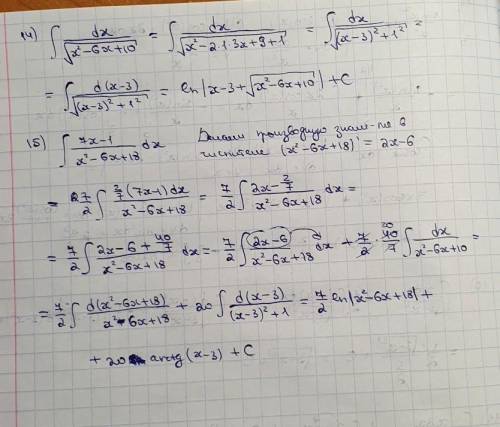 14) ∫ dx/√(x²-6x+10) = ∫ dx/√(x²-2·1·3x+9+1) = ∫ dx/√((x-3)²+1²) =
= ∫ d(x-3)/√((x-3)²+1²) = ln|x-3+√(x²-6x+10)| + C
15) ∫ (7x-1)/(x²-6x+18) dx Делаем производную знам-ля в
числителе (x²-6x+18)' = 2x-6
= 7/2 ∫ 2/7 (7x-1)dx/(x²-6x+18) = 7/2 ∫ (2x-2/7)/(x²-6x+18) dx =
= 7/2 ∫ (2x-6+40/7)/(x²-6x+18) dx = 7/2 ∫ (2x-6)/(x²-6x+18) · dx + 7/2 · 40/7 ∫ dx/(x²-6x+10) =
= 7/2 ∫ d(x²-6x+18)/(x²-6x+18) + 20 ∫ d(x-3)/((x-3)²+1) = 7/2 ln|x²-6x+18| +
+ 20 arctg(x-3) + C